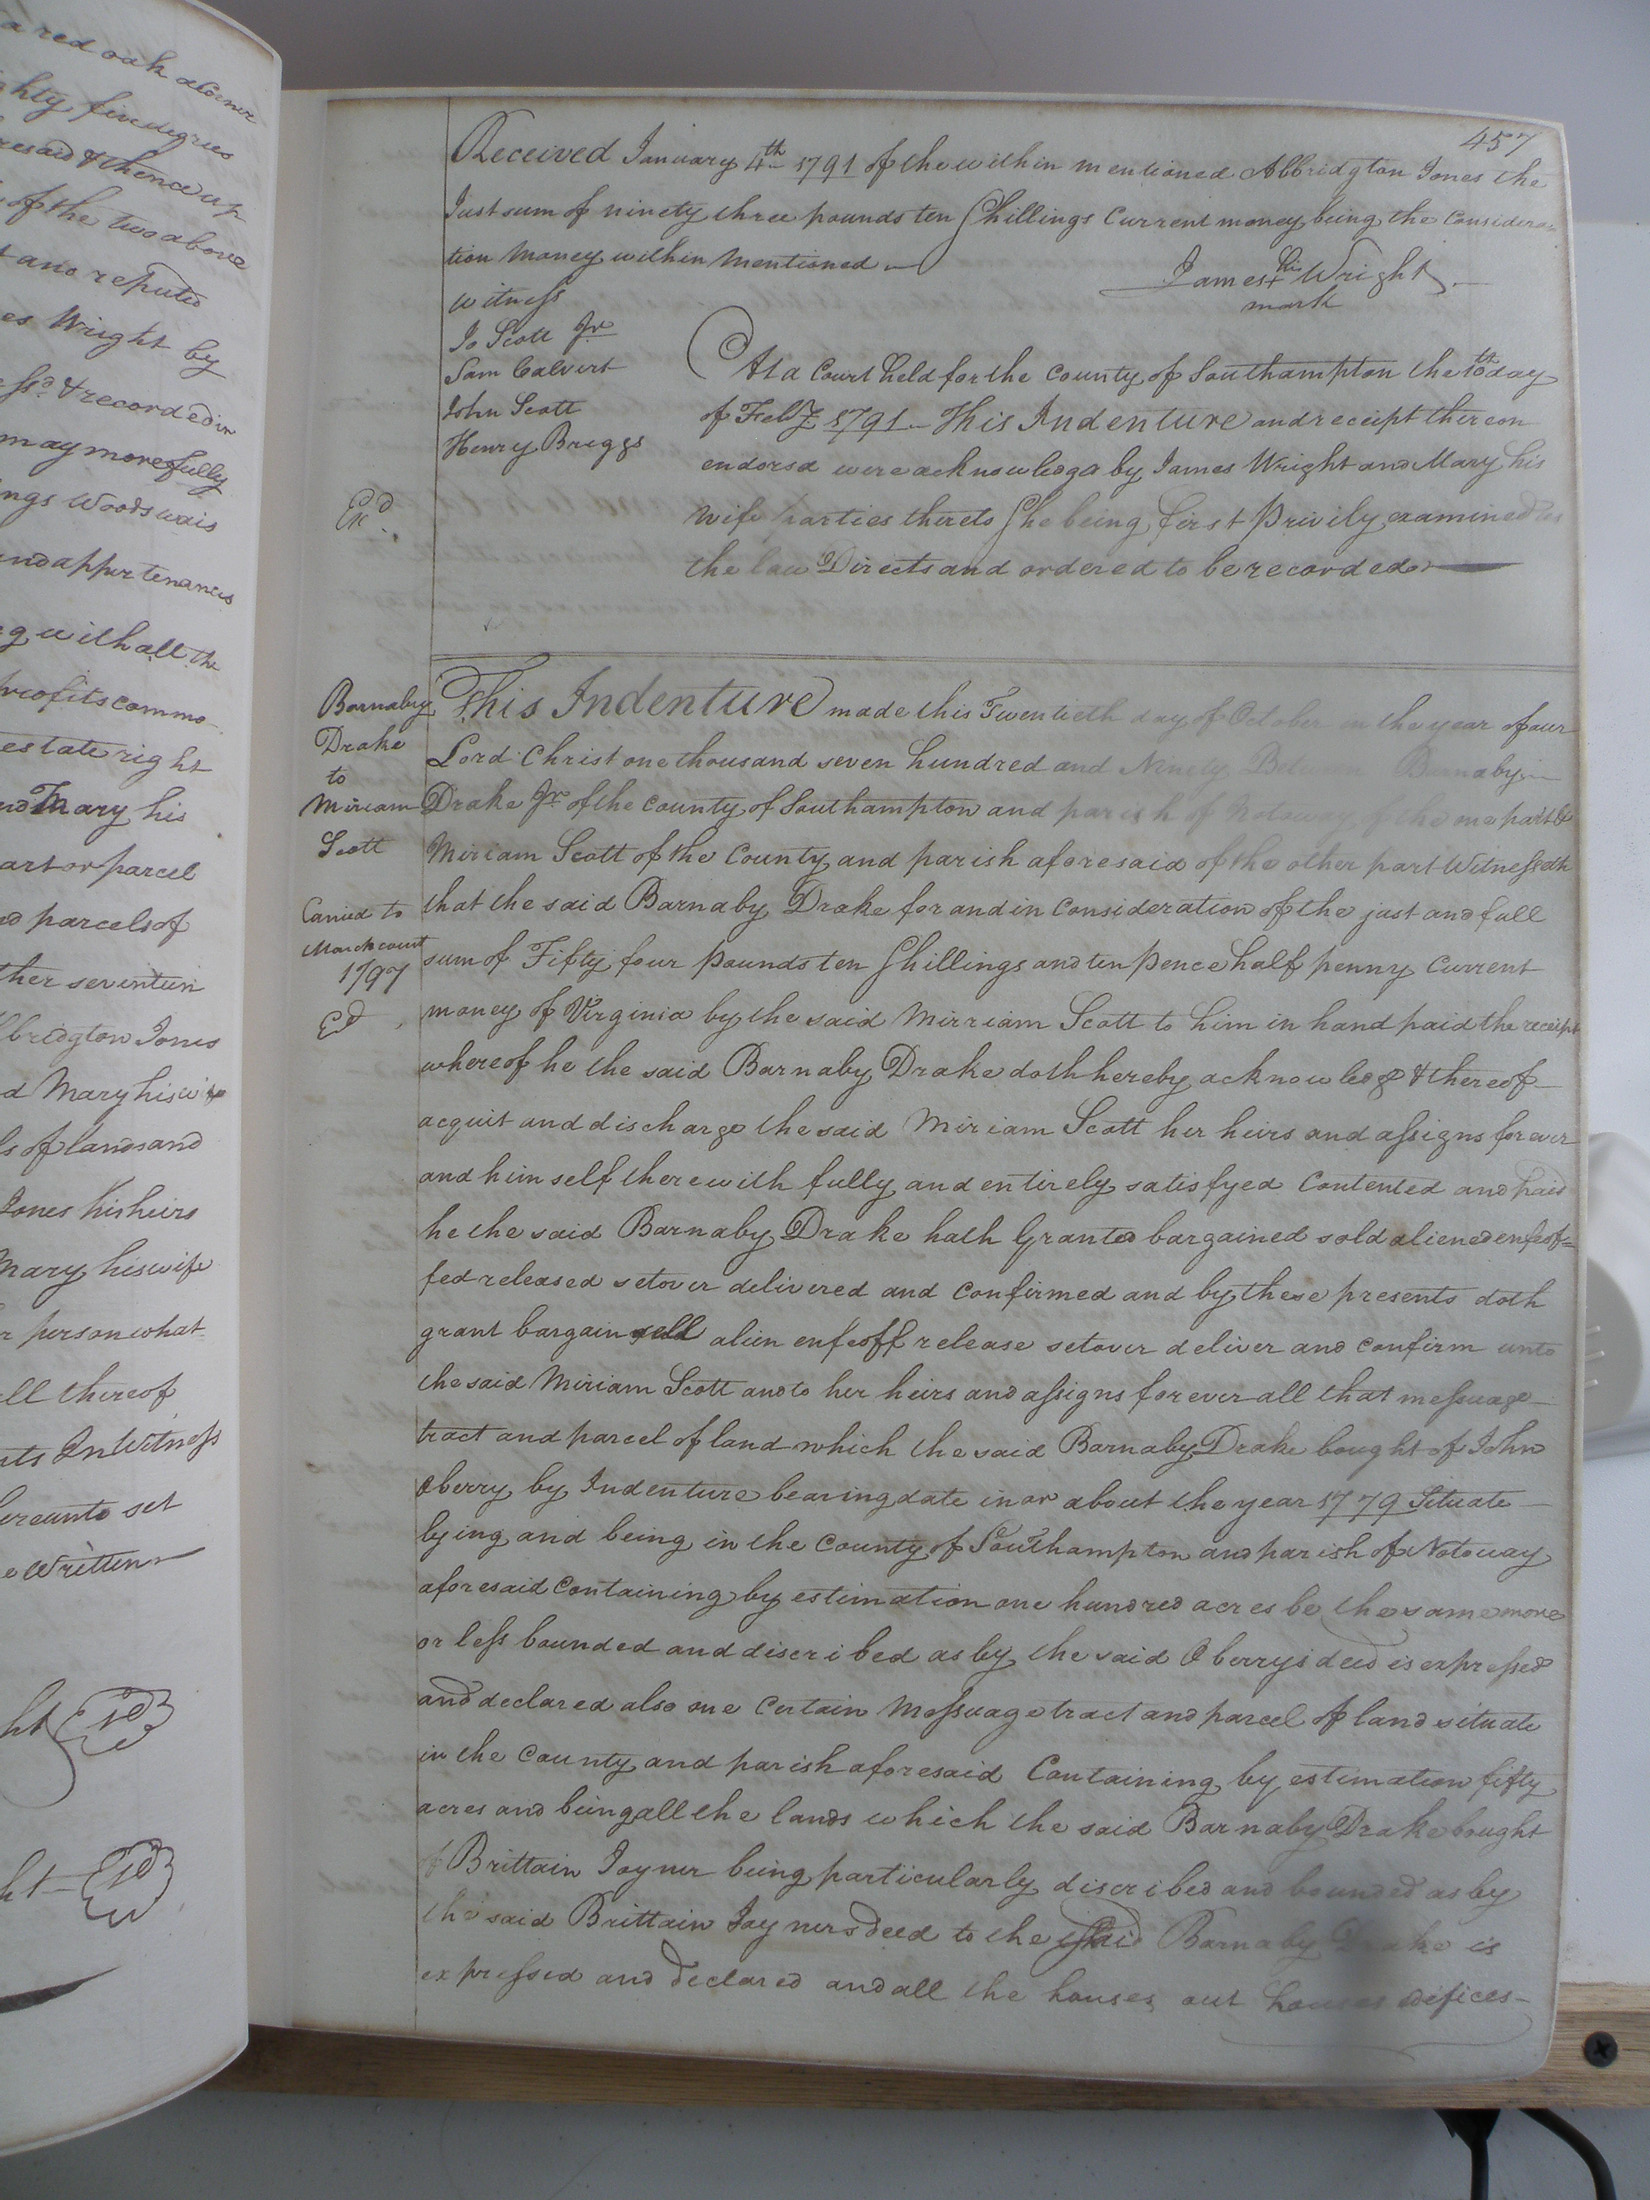 a red oak a Corner
ghty five degrees
resaid & thence up
of the two above
t and reputed
es Wright by
& recorded in
may more fully
ngs Woods wais
and appertenances
g with all the
profits commo
estate right
nd Mary his
art or parcel
ed parcels of
ther seventeen
lbridgton Jones
d Mary his wife
ls of lands and
Jones his heirs
Mary his wife
r person what
ll thereof
nts In Witness
hereunto set
e Written
ht
ht
457
Received January 4th 1791 of the within mentioned Albridgton Jones the
Just sum of ninety three pounds ten Shillings Current money being the Considera
tion Money within Mentioned
James his + Wright
mark
witness
Jo Scott Jr
Sam Calvert
John Scott
Henry Briggs
At a Court held for the County of Southampton the 10th day
of Feby 1791 - This Indenture and receipt thereon
endorsd were acknowledgd by James Wright and Mary his
Wife parties thereto She being first Privily examined as
the law Directs and ordered to be recorded
Exd
Barnaby
Drake
to
Miriam
Scott
Carried to
March court
1797
Ed
This Indenture made this Twentieth day of October in the year of our
Lord Christ one thousand seven hundred and Ninety Between Barnaby
Drake Jr of the County of Southampton and parish of Notoway of the one part &
Miriam Scott of the County and parish aforesaid of the other part Witnesseth
that the said Barnaby Drake for and in Consideration of the just and full
sum of Fifty four Pounds ten Shillings and ten Pence half penny Current
money of Virginia by the said Mirriam Scott to him in hand paid the receipt
whereof he the said Barnaby Drake doth hereby acknowledge & thereof
acquit and discharge the said Miriam Scott her heirs and assigns forever
and himself therewith fully and entirely satisfyed Contented and paid
he the said Barnaby Drake hath Granted bargained sold aliened enfeof=
fed released setover delivered and Confirmed and by these presents doth
grant bargain sell alien enfeoff release setover deliver and confirm unto
the said Miriam Scott and to her heirs and assigns forever all that messuage
tract and parcel of land which the said Barnaby Drake bought of John
Oberry by Indenture bearing date in or about the year 1779 Situate
lying and being in the County of Southampton and parish of Notoway
aforesaid Containing by estimation one hundred acres be the same more
or less bounded and discribed as by the said Oberrys deed is expressed
and declared also one Certain Messuage tract and parcel of land situate
in the County and parish aforesaid Containing by estimation fifty
acres and being all the lands which the said Barnaby Drake bought
of Brittain Joyner being particularly discribed and bounded as by
the said Brittain Joyners deed to the said Barnaby Drake is
expressed and declared and all the houses out houses edifices